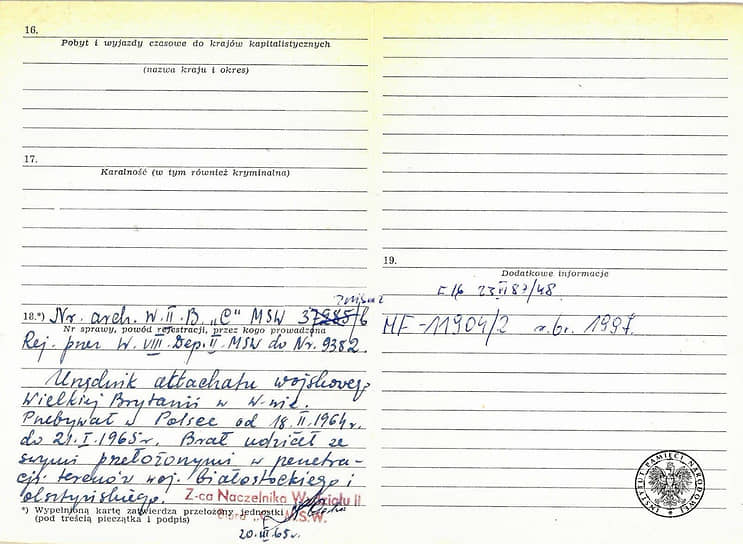 16.
Pobyt i wyjazdy czasowe do krajów kapitalistycznych
(nazwa kraju i okres)
17.
Karalność (w tym również kryminalna)
18.*) Nr. arch. W. II. B. „C” MSW 37285/6
Nr sprawy, powód rejestracji, przez kogo prowadzona
Rej. przez W. VIII. Dep. II. MSW do Nr. 9382.
Urzędnik attachatu wojskowego
Wielkiej Brytanii w W-wie.
Przebywał w Polsce od 18.II.1964r.
do 21.I.1965r. Brał udział ze
swymi przełożonymi w penetra-
cji terenów woj. białostockiego i
olsztyńskiego.
Z-ca Naczelnika Wydziału II
Biura „C” M.S.W.
*) Wypełnioną kartę zatwierdza przełożony jednostki
(pod treścią pieczątka i podpis)
20.III.65r.
19.
Dodatkowe informacje
23 VI 87/48.
MF-11904/2 1997.
INSTYTUT PAMIĘCI NARODOWEJ